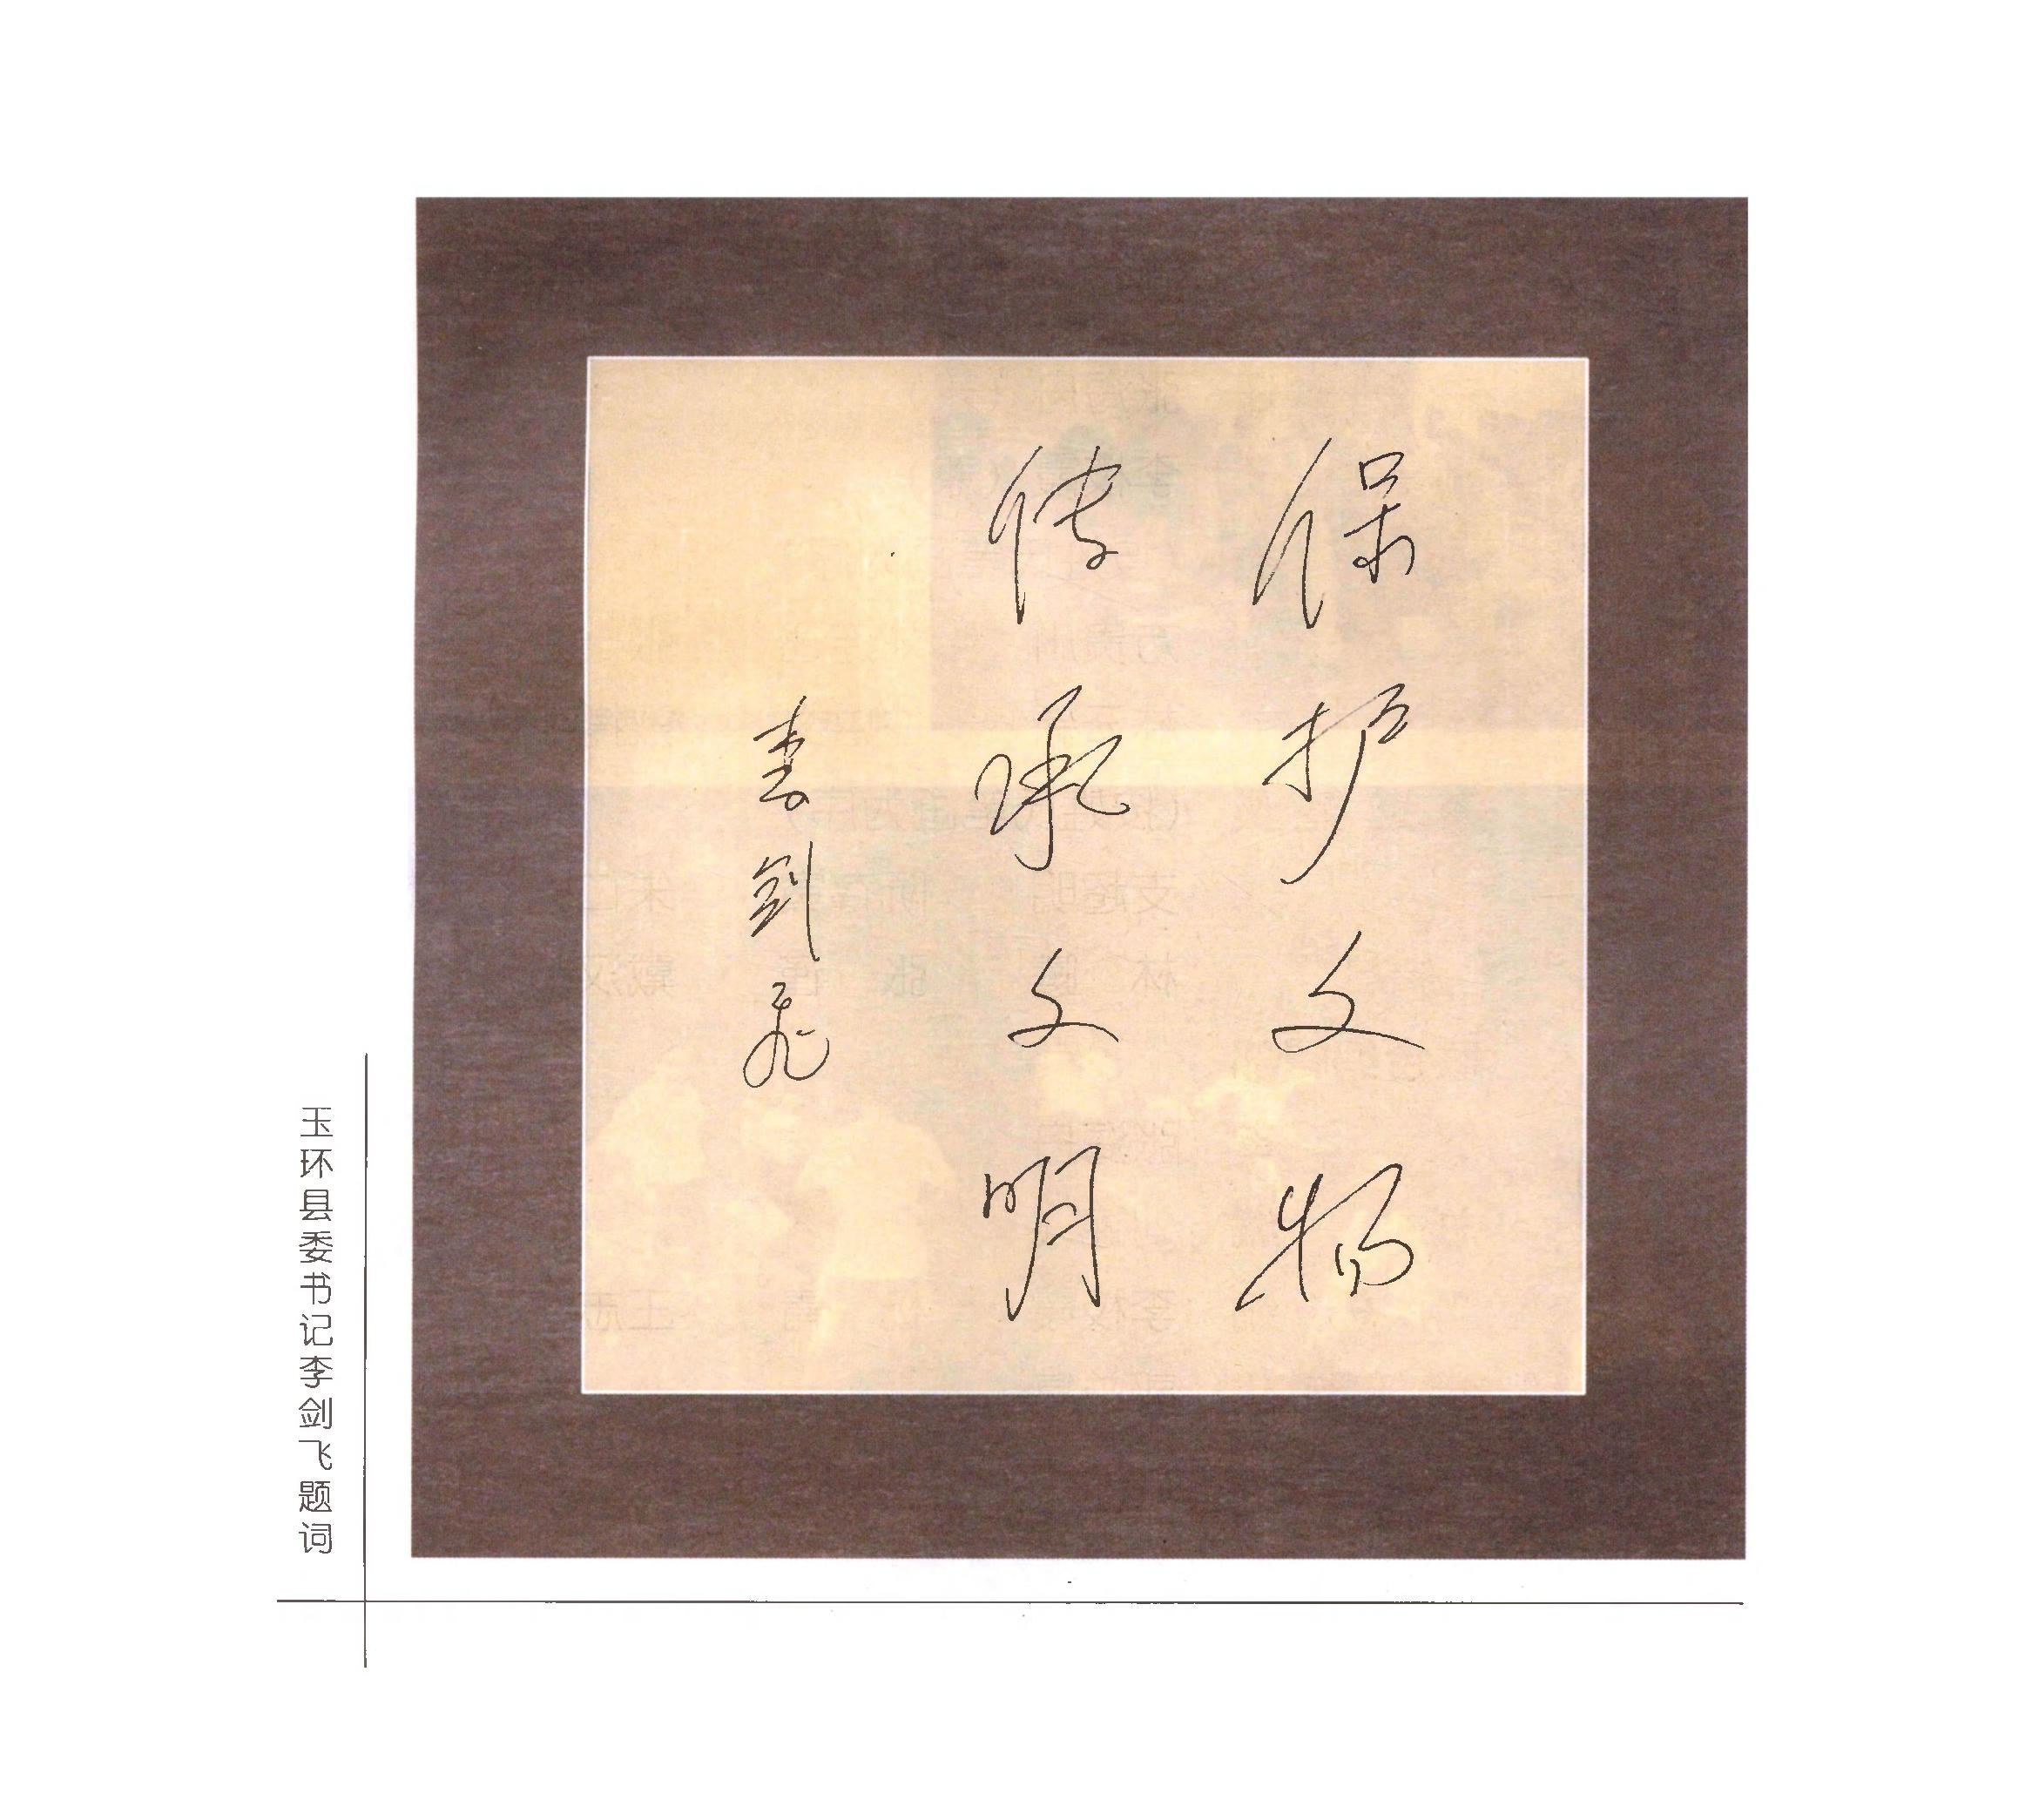 保护文物
传承文明
李剑飞
玉环县委书记李剑飞题词